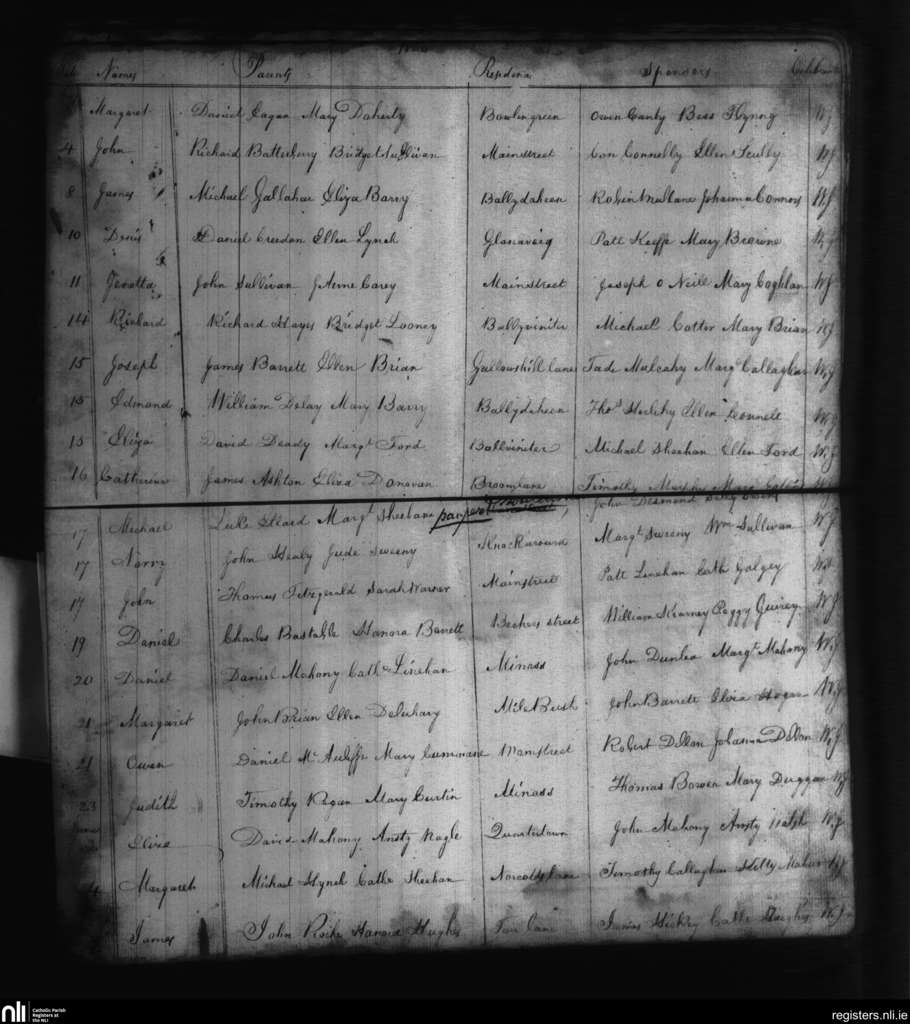 Names Parents Residence Sponsors
Margaret Daniel Eagan Mary Doherty Bowlingreen Owen Canty Bess Flynng WJ
4 John Richard Batterberry Bridget Sullivan Mainstreet Con Connelly Ellen Scully WJ
8 James Michael Gallahar Eliza Barry Ballydaheen Robin Mullane Johanna Connors WJ
10 Denis Daniel Creedon Ellen Lynch Glanaveig Patt Keeffe Mary Browne WJ
11 John Sullivan Carey Mainstreet Joseph O Neill Mary Coghlan WJ
14 Richard Richard Hayes Bridget Looney Ballyviniter Michael Cotter Mary Brian WJ
15 Joseph James Barrett Ellen Brian Gallowshill lane Tade Mulcahy Margt Callaghan WJ
15 Edmond William Delay Mary Barry Ballydaheen Thos Ellen Connell WJ
15 Eliza David Deady Margt Ford Ballviniter Michael Sheehan Ellen Ford WJ
16 Catherine James Ashton Eliza Donovan Broomlane Timothy
17 Michael Luke Margt Sheehane pauper John Desmond WJ
17 Norry John Healy Jude Sweeny Margt Sweeny Wm Sullivan WJ
17 John Thomas Fitzgerald Sarah Warner Mainstreet Patt Linehan Cath Golgey WJ
19 Daniel Charles Bastable Hanora Barrett Beckers street William Kearney Peggy WJ
20 Daniel Daniel Mahony Cath Linehan Minass John Dunlea Margt Mahony WJ
21 Margaret John Brian Ellen Mile Bush John Barrett Eliza Hogan WJ
21 Owen Daniel McAuliffe Mary Cummane Mainstreet Robert Dillon Johanna Dillon WJ
23 Judith Timothy Regan Mary Curtin Minass Thomas Bowen Mary Duggan WJ
Eliza David Mahony Ansty Nagle Quartertown John Mahony Ansty WJ
4 Margaret Michael Lynch Cathe Sheehan Timothy Callaghan Kitty WJ
James John Roche Hanora Hughes Fair Lane James Hickey Cathe Hughes WJ
nli Catholic Parish
Registers at
the NLI
registers.nli.ie